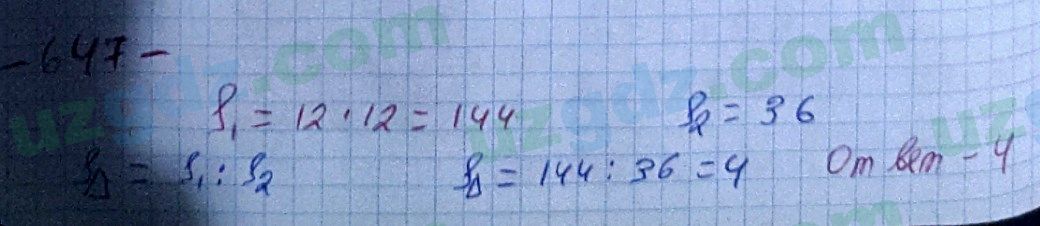 - 647 -
S₁ = 12 · 12 = 144 S₂ = 36
S△ = S₁ : S₂ S△ = 144 : 36 = 4 Ответ - 4
uzgdz.com
uzgdz.com